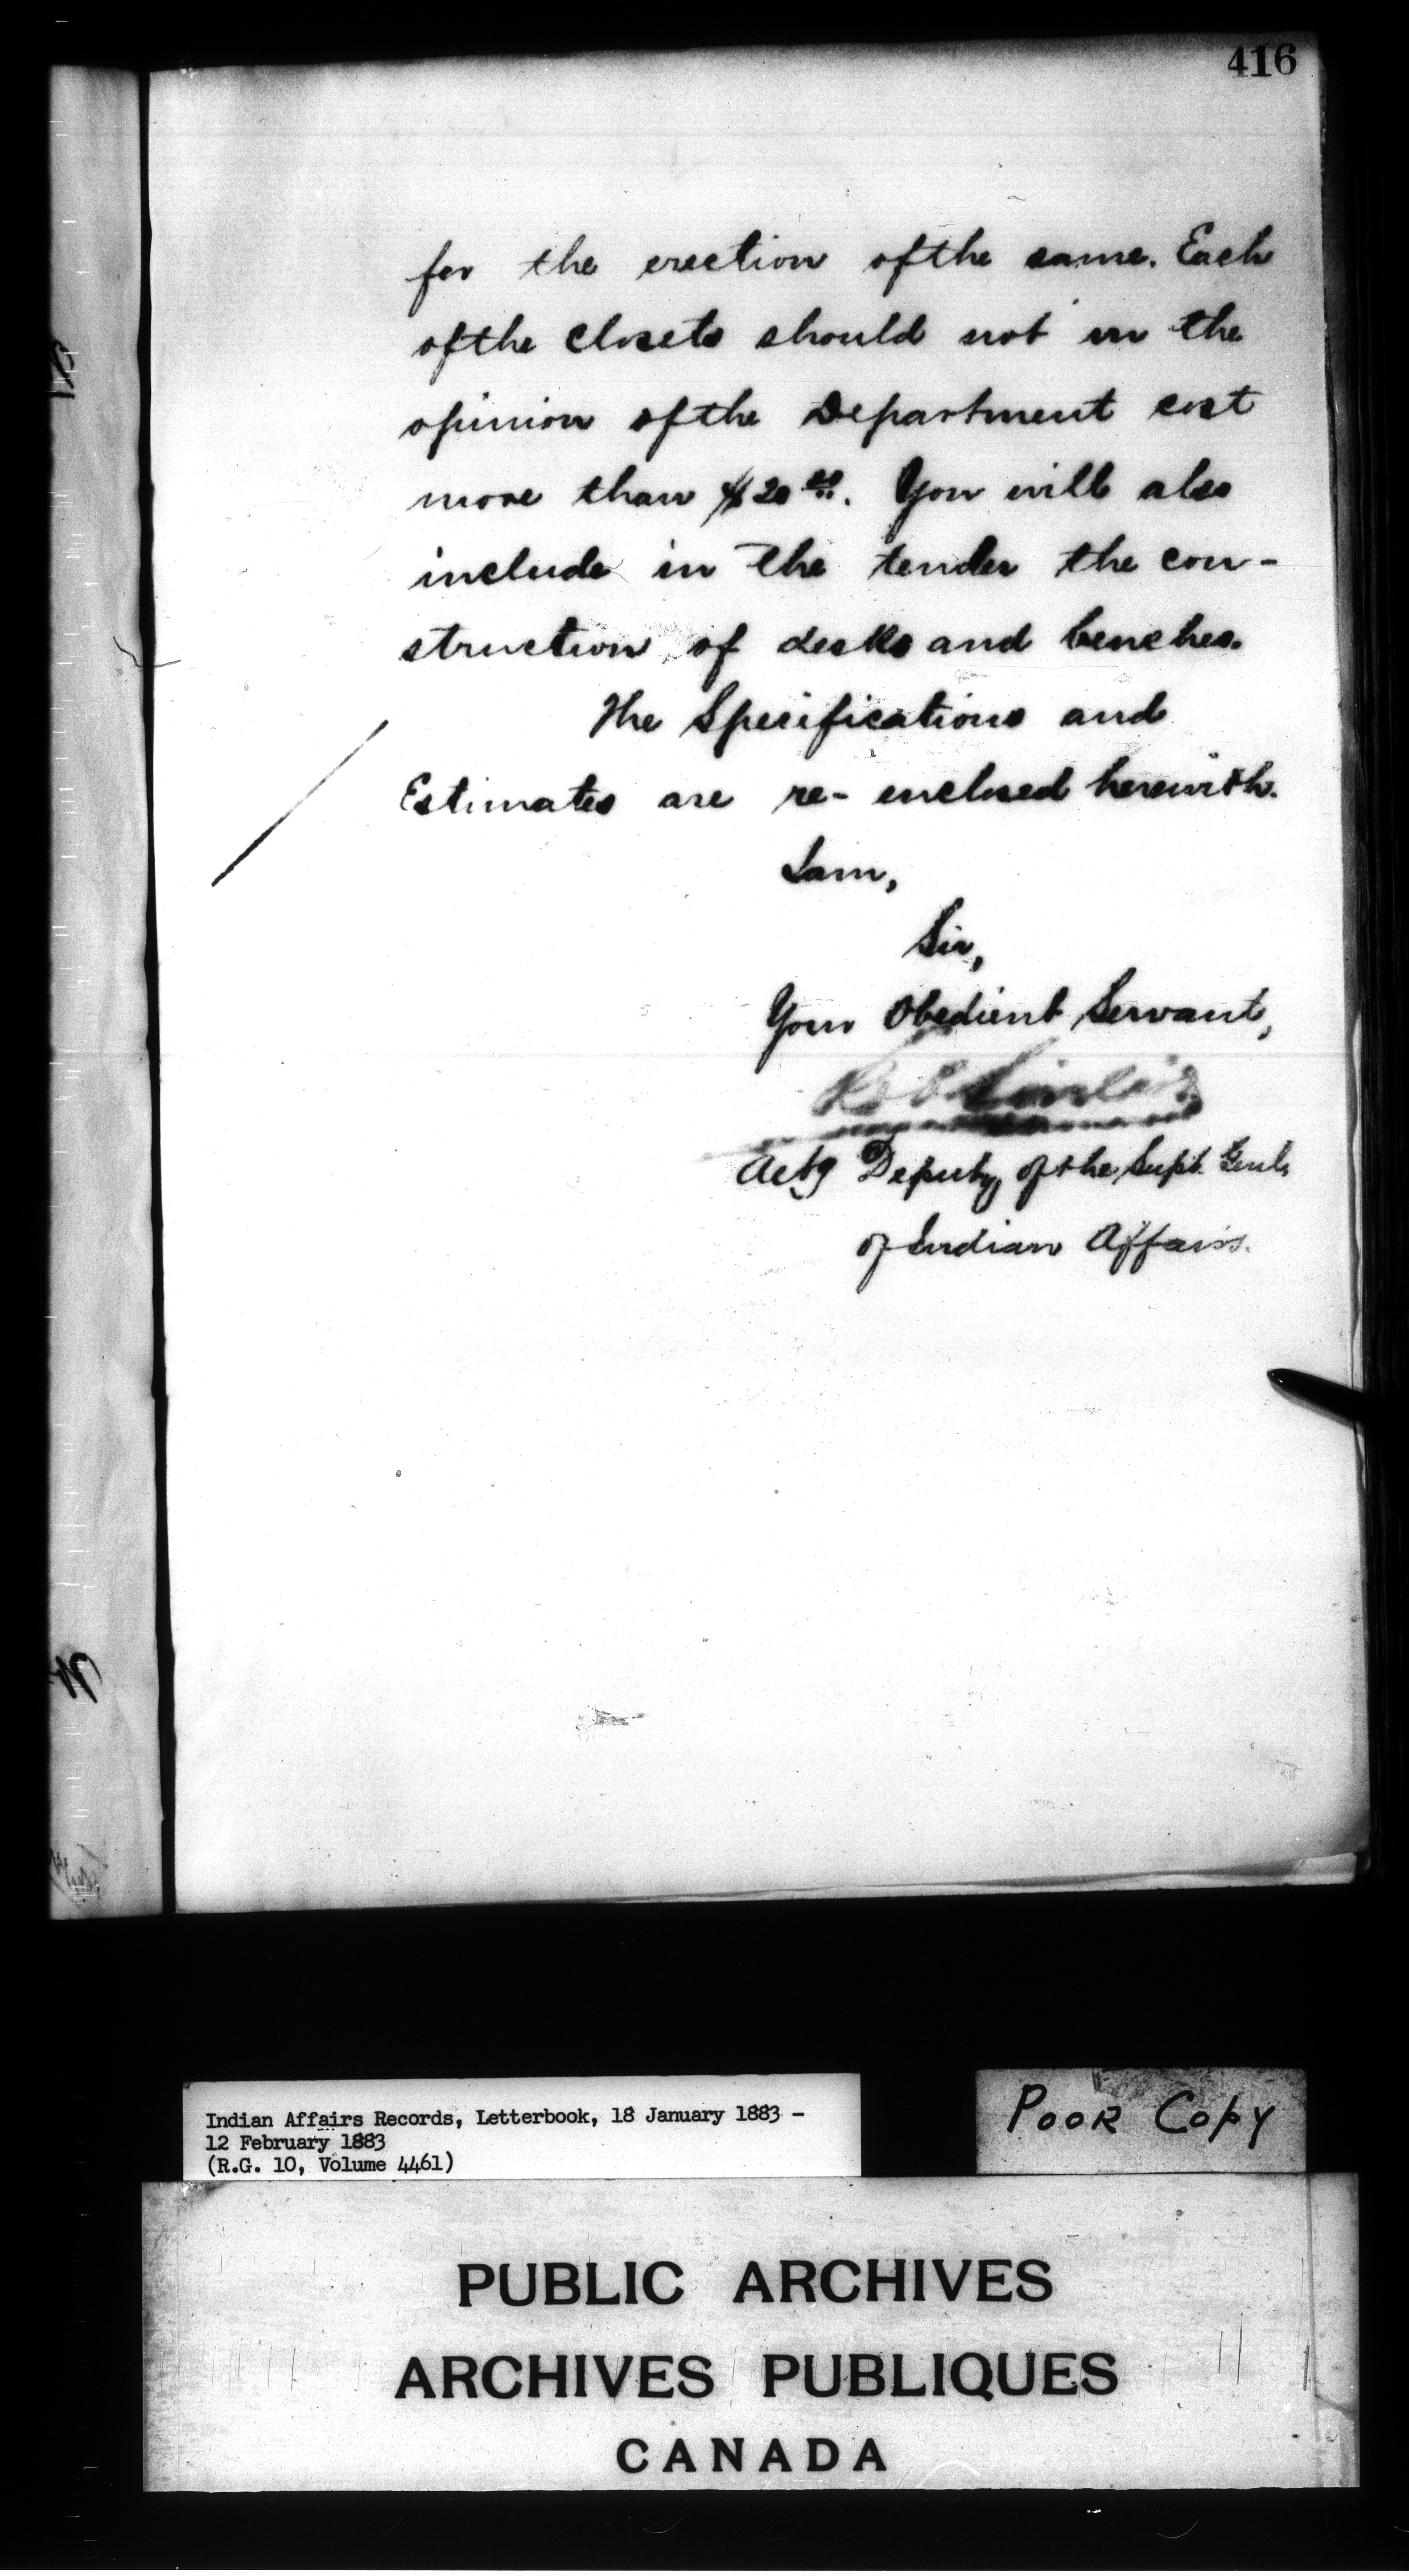 416
for the erection of the same. Each
of the Closets should not in the
opinion of the Department cost
more than $20.00. You will also
include in the tender the con-
struction of desks and benches.
The Specifications and
Estimates are re-enclosed herewith.
I am,
Sir,
Your Obedient Servant,
Actg Deputy of the Supt. Genl.
of Indian Affairs.
Indian Affairs Records, Letterbook, 18 January 1883 -
12 February 1883
(R.G. 10, Volume 4461)
POOR COPY
PUBLIC ARCHIVES
ARCHIVES PUBLIQUES
CANADA